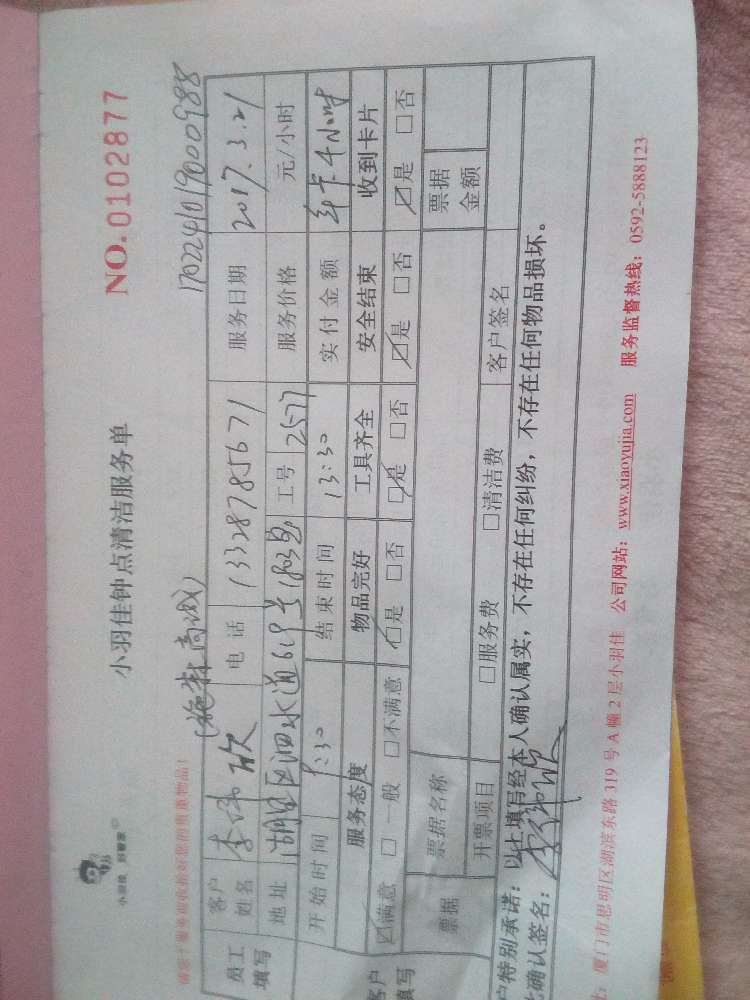 小羽佳 好管家
小羽佳钟点清洁服务单
NO.0102877
(施特商城)
17022410190000988
员工填写
客户姓名 李伟欣 电话 13328785671 服务日期 2017.3.21
地址 湖里区泗水道619号1803室 工号 2577 服务价格 元/小时
开始时间 :30 结束时间 13:30 实付金额 年卡4小时
服务态度 物品完好 工具齐全 安全结束 收到卡片
☑满意 □一般 □不满意 ☑是 □否 ☑是 □否 ☑是 □否 ☑是 □否
票据 票据名称 票据金额
开票项目 □服务费 □清洁费 客户签名
户特别承诺：以上填写经本人确认属实，不存在任何纠纷，不存在任何物品损坏。
确认签名：李伟欣
厦门市思明区湖滨东路 319 号 A 幢 2 层小羽佳 公司网站：www.xiaoyujia.com 服务监督热线：0592-5888123